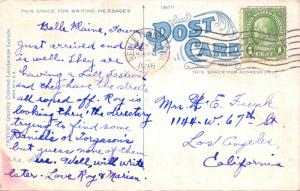 THIS SPACE FOR WRITING MESSAGES
POST CARD
THIS SPACE FOR ADDRESS ONLY
Belle Plaine, Iowa
Just arrived and all
is well. They are
having a Fall Festival
and they have the streets
all roped off. Roy is
looking thru the directory
trying to find some
Daniels or Fergusons
but guess none of them
are here. Well will write
later. Love Roy & Marian.
Mrs H. E. Funk
1144 W. 67th St
Los Angeles,
California